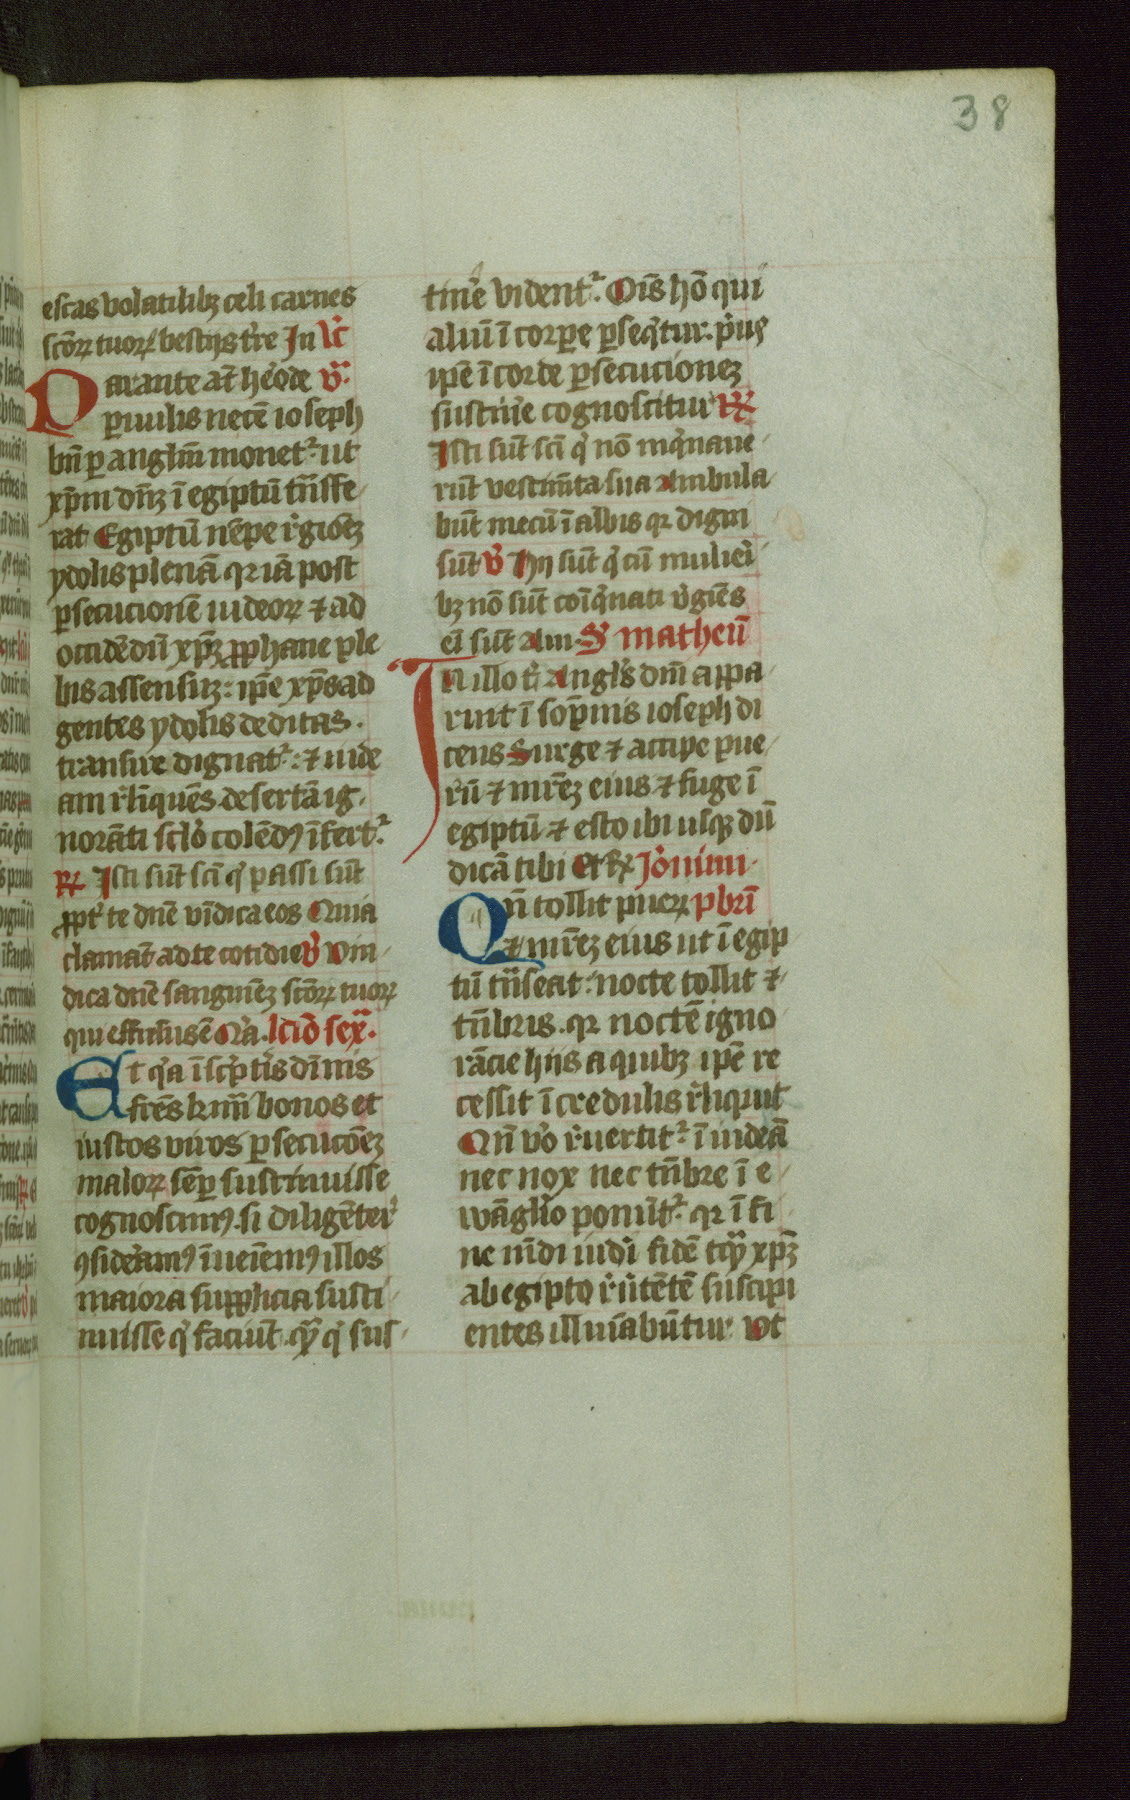 38
escas volatilibꝫ celi carnes
sc̄oꝝ tuoꝝ bestijs t̄re In Vc̄
Parante at̄ herode v̄
ꝑvulis necē ioseph
bn̄ ꝑ angl̄m monet᷑ ut
xp̄m dn̄ꝫ ī egiptū tn̄sfe
rat Egiptū nēpe r̄gioēꝫ
ydolis plenā qꝛ iā post
ꝑsecucionē iudeoꝝ ⁊ ad
occidēdū xp̄ꝫ ꝓphane ple
bis assensuꝫ ip̄e xp̄s ad
gentes ydolis deditas
transire dignat᷑ ⁊ iude
am r̄linquēs desertā ig
norāti sc̄lo colēdꝰ īfert᷑
℞ Isti sūt sc̄i q̄ passi sūt
ꝓpt̄ te dn̄e vīdica eos Quia
clamāt ad te cotidie v̄ Vin
dica dn̄e sanguinēꝫ sc̄oꝝ tuoꝝ
qui effusus ē Q̄a lc̄io sex̄
Et q̄a ī sc̄ptr̄is diīnis
fr̄es kr̄mi bonos et
iustos viros ꝑsecucōēꝫ
maloꝝ sēꝑ sustinuisse
cognoscimꝰ si diligēter
ꝯsideramꝰ īueiēmꝰ illos
maiora supplicia susti
nuisse q̄ faciūt qȳ q̄ sus
tinē vident᷑ Oīs hō qui
aliū ī corꝑe ꝑseq̄tur pͥus
ip̄e ī corde ꝑsecucionēꝫ
sustinē cognoscitur ℞
Isti sūt sc̄i q̄ nō inq̄naue
rūt vestim̄ta sua Ambula
būt mecū ī albis qꝛ digni
sūt v̄ Hij sūt q̄ cū mulieri
bꝫ nō sūt coīq̄nati v̄gīes
ei sūt Am S̄ matheū
In illo tr̄ Angl̄s dn̄i appa
ruit ī sōpnis ioseph di
cens Surge ⁊ accipe pue
rū ⁊ mr̄eꝫ eius ⁊ fuge ī
egiptū ⁊ esto ibi usqꝫ dū
dicā tibi Et ℞ Jōnimi
Qn̄ tollit pueꝝ pbr̄i
⁊ mr̄eꝫ eius ut ī egip
tū tn̄seat nocte tollit ⁊
tn̄bris qꝛ noctē igno
rācie hijs a quibꝫ ip̄e re
cessit īcredulis r̄liquit
Qn̄ v̄o r̄uertit᷑ ī iudeā
nec nox nec tn̄bre ī e
wāgl̄io ponūt᷑ qꝛ ī fi
ne mūdi iudi fidē tqȳ xp̄ꝫ
ab egipto r̄utētē suscipi
entes illuiābūtur Vt